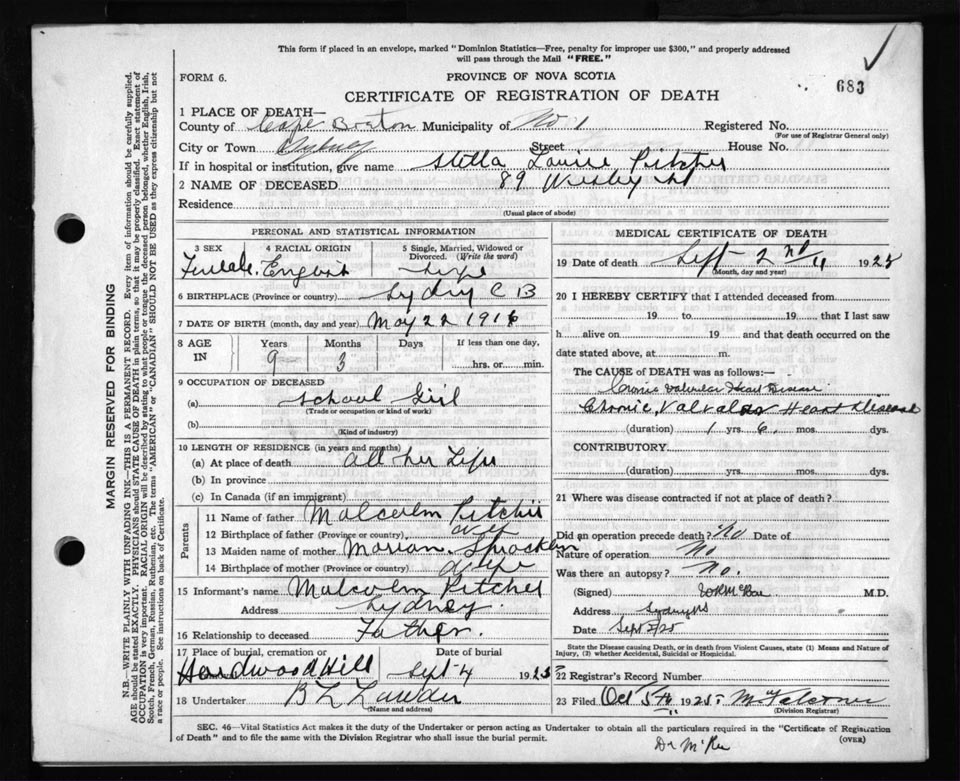 This form if placed in an envelope, marked "Dominion Statistics—Free, penalty for improper use $300," and properly addressed
will pass through the Mail "FREE."
FORM 6.
PROVINCE OF NOVA SCOTIA
683
CERTIFICATE OF REGISTRATION OF DEATH
1 PLACE OF DEATH—
County of Cape Breton Municipality of No. 1 Registered No.
(For use of Registrar General only)
City or Town Sydney Street House No.
If in hospital or institution, give name Stella Louise Pitcher
2 NAME OF DECEASED 89 Wesley St
Residence
(Usual place of abode)
PERSONAL AND STATISTICAL INFORMATION
3 SEX 4 RACIAL ORIGIN 5 Single, Married, Widowed or
Divorced. (Write the word)
Female. English
6 BIRTHPLACE (Province or country) Sydney C B
7 DATE OF BIRTH (month, day and year) May 22 1916
8 AGE IN Years Months Days If less than one day,
9 3 hrs. or min.
9 OCCUPATION OF DECEASED
(a) School Girl
(Trade or occupation or kind of work)
(b)
(Kind of industry)
10 LENGTH OF RESIDENCE (in years and months)
(a) At place of death all her Life
(b) In province
(c) In Canada (if an immigrant)
Parents
11 Name of father Malcolm Pitcher
12 Birthplace of father (Province or country)
13 Maiden name of mother Marian Spracklin
14 Birthplace of mother (Province or country)
15 Informant's name Malcolm Pitcher
Address Sydney.
16 Relationship to deceased Father.
17 Place of burial, cremation or Date of burial
Hardwood Hill Sept 4 1925
18 Undertaker B L Lawder
(Name and address)
MEDICAL CERTIFICATE OF DEATH
19 Date of death Sept 2nd 1925
(Month, day and year)
20 I HEREBY CERTIFY that I attended deceased from
19 to 19 that I last saw
h alive on 19 and that death occurred on the
date stated above, at m.
The CAUSE of DEATH was as follows:—
Cronic Valvular Heart Disease
Chronic, Valvular Heart Disease
(duration) 1 yrs. 6 mos. dys.
CONTRIBUTORY.
(duration) yrs. mos. dys.
21 Where was disease contracted if not at place of death?
Did an operation precede death? No Date of
Nature of operation No
Was there an autopsy? No.
(Signed) M.D.
Address Sydney NS
Date Sept 2/25
State the Disease causing Death, or in death from Violent Causes, state (1) Means and Nature of
Injury, (2) whether Accidental, Suicidal or Homicidal.
22 Registrar's Record Number
23 Filed Oct 5th 1925
(Division Registrar)
SEC. 46—Vital Statistics Act makes it the duty of the Undertaker or person acting as Undertaker to obtain all the particulars required in the "Certificate of Registration
of Death" and to file the same with the Division Registrar who shall issue the burial permit.
(OVER)
Dr McRae
MARGIN RESERVED FOR BINDING
N.B.—WRITE PLAINLY WITH UNFADING INK—THIS IS A PERMANENT RECORD. Every item of information should be carefully supplied.
AGE should be stated EXACTLY. PHYSICIANS should STATE CAUSE OF DEATH in plain terms, so that it may be properly classified. Exact statement of
OCCUPATION is very important. RACIAL ORIGIN will be described by stating to what people or tongue the deceased person belonged, whether English, Irish,
Scotch, French, German, Russian, Ruthenian, etc. The terms "AMERICAN" or "CANADIAN" SHOULD NOT BE USED as they express citizenship but not
a race or people. See instructions on back of Certificate.